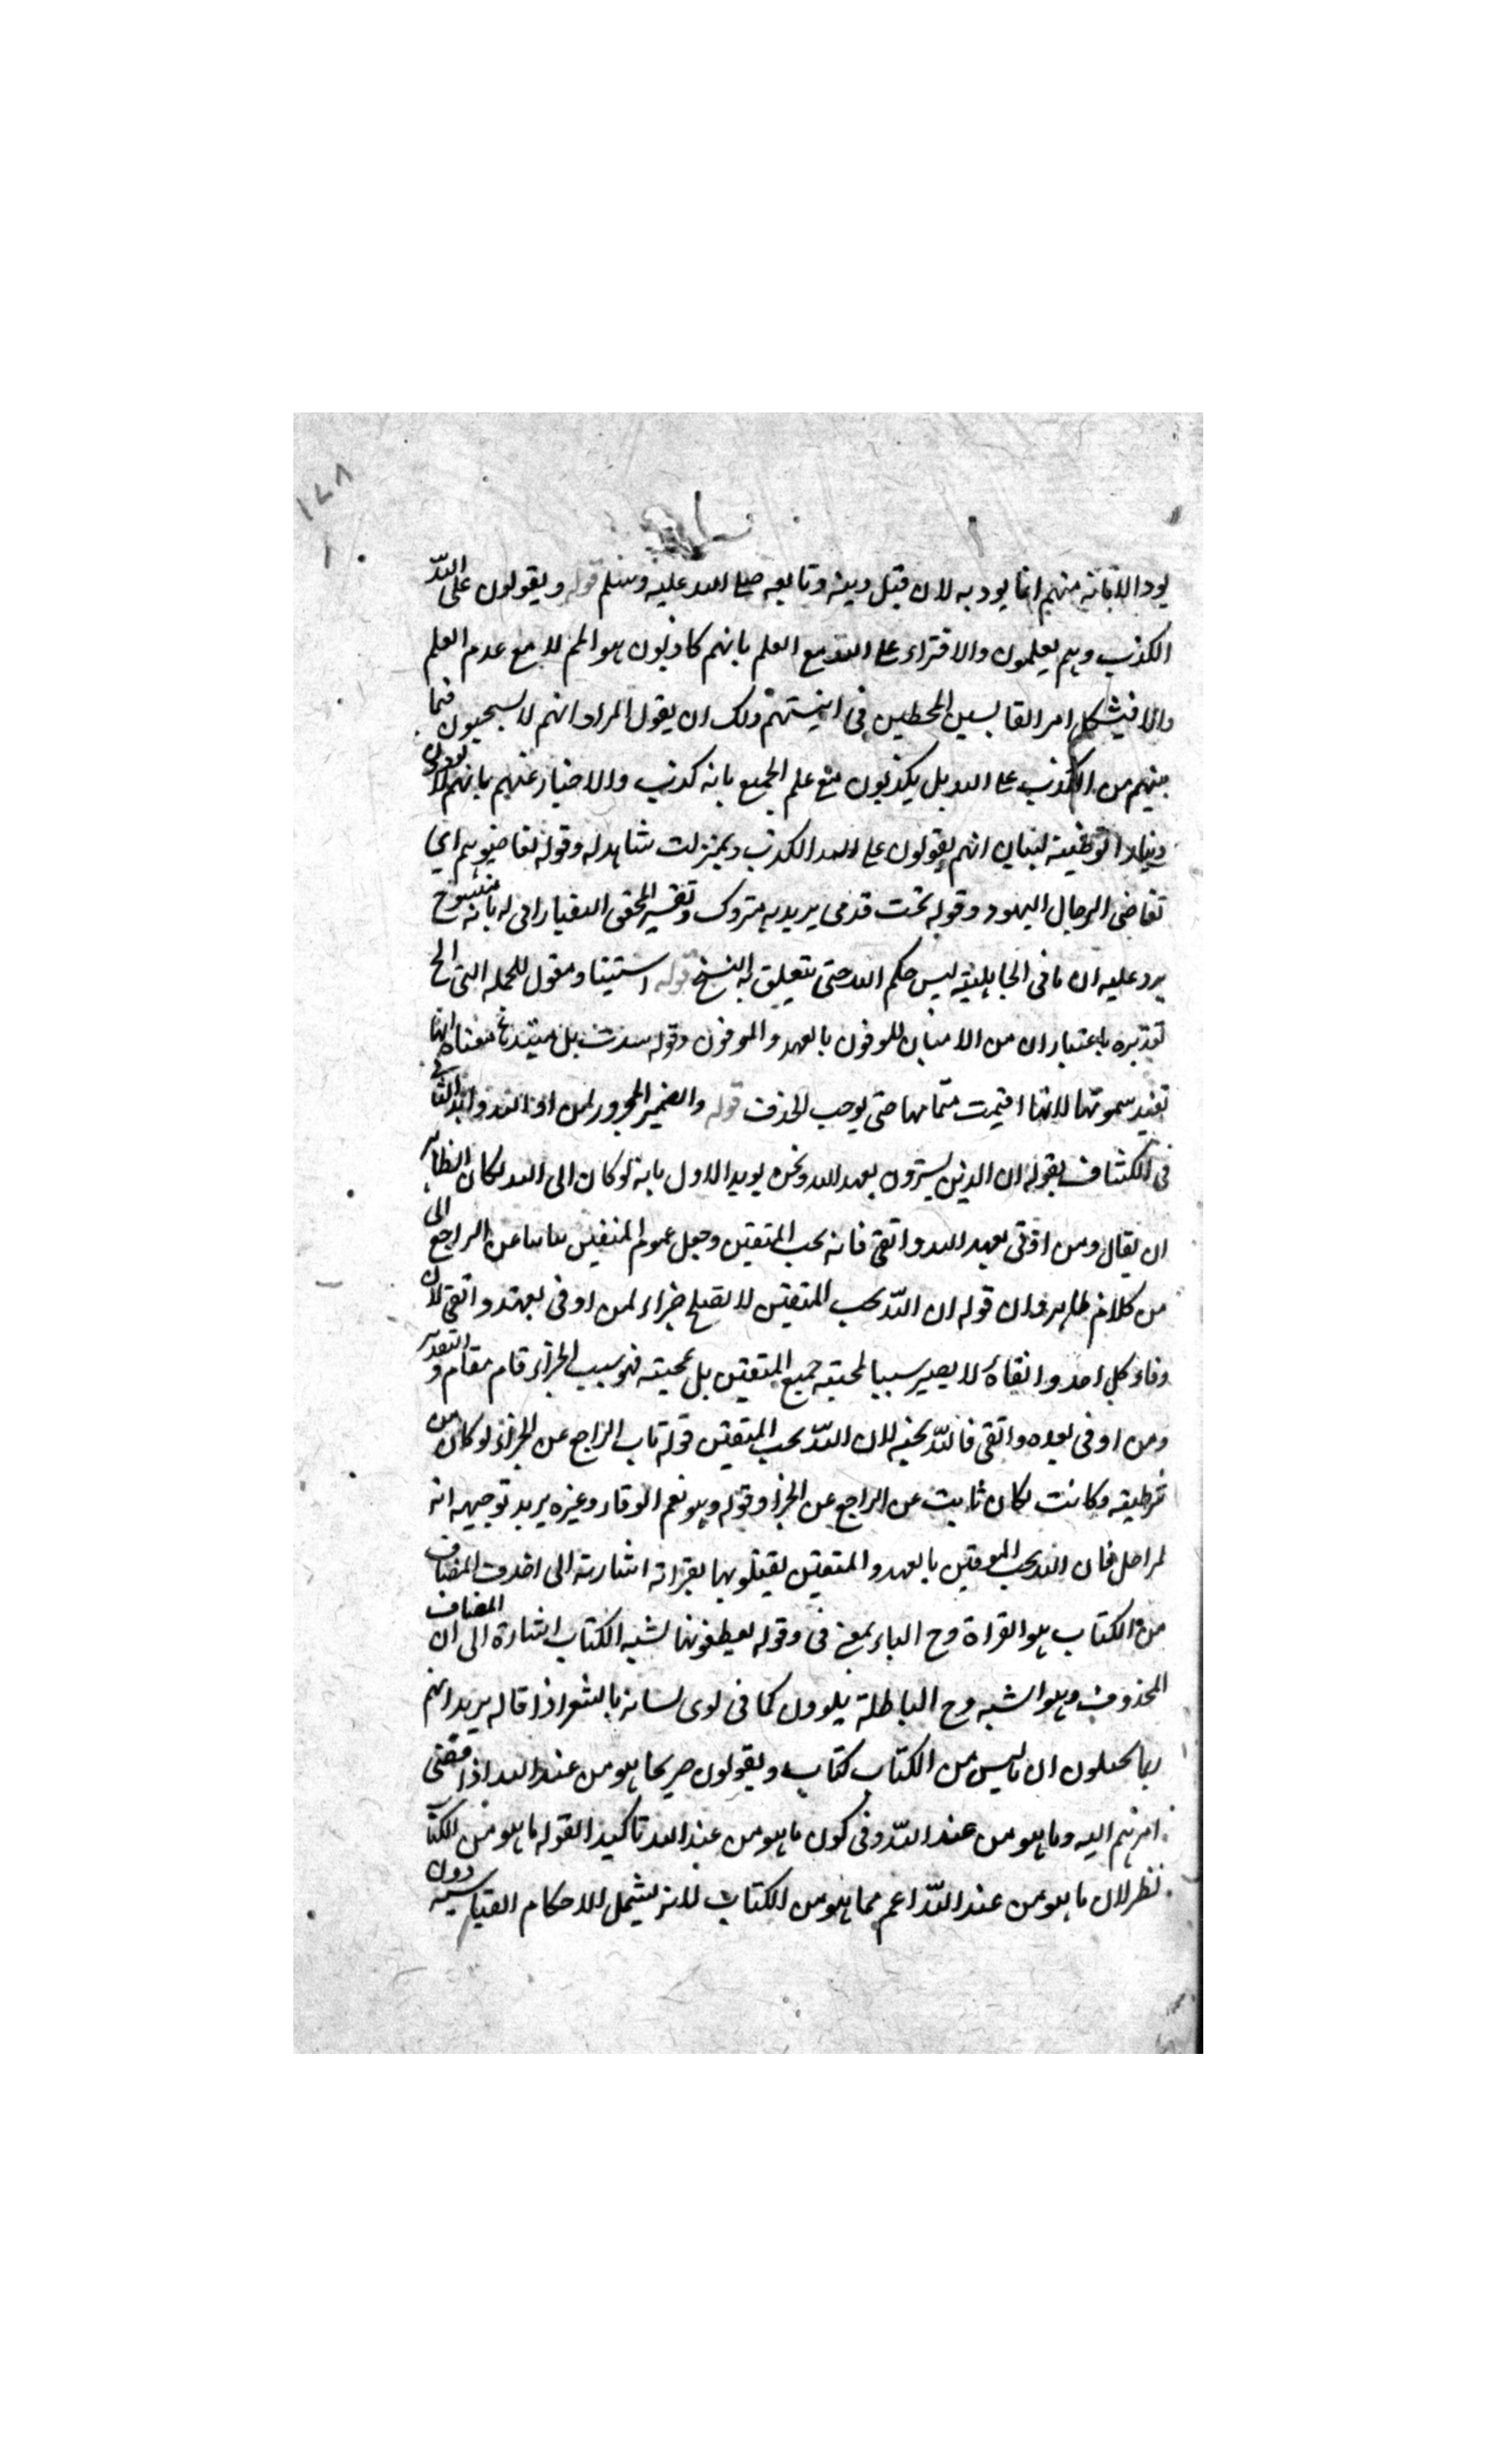 ١٧٨
يود الامانة منهم انما يود به لان قبل دينه وتابعه صلى الله عليه وسلم قوله ويقولون على الله
الكذب وهم يعلمون والافتراء على الله مع العلم بانهم كاذبون هو المحرم لا مع عدم العلم
والا فيشكل امر القايسين المخطئين في اقيستهم ولك ان يقول المراد انهم لا يستحيون فيما
بينهم من الكذب على الله بل يكذبون مع علم الجميع بانه كذب والاخبار عنهم بانهم لا يودون
دينارا توطئة لبيان انهم يقولون على الله الكذب وبمنزلت شاهد له وقوله تقاضيوهم اي
تقاضى الرجال اليهود وقوله تحت قدمى يريد به متروك وتفسير المحقق التفتازاني له بانه منسوخ
يرد عليه ان ما في الجاهلية ليس حكم الله حتى يتعلق به النسخ قوله استيناف مقول للجملة التي الخ
تقديره باعتبار ان من الامنان للموفون بالعهد والموفون وقوله سدت بل مسد معناه انها
تفيد لانها اقيمت مقامها حتى يوجب الحذف قوله والضمير المجرور لمن او الله وايد الثاني
في الكشاف بقوله ان الذين يشترون بعهد الله ونحن يويد الاول بانه لو كان الى الله لكان الظاهر
ان يقال ومن اوفى بعهد الله واتقى فانه يحب المتقين وجعل عموم المتقين نائبا عن الراجع الى
من كلام ظاهر وان قوله ان الله يحب المتقين لا يصلح جزاء لمن اوفى بعهده واتقى لان
وفاء كل احد واتقاءه لا يصير سببا لمحبته جميع المتقين بل لمحبته فهو سبب الجزاء قام مقامه والتقدير
ومن اوفى بعهده واتقى فالله يحبه لان الله يحب المتقين قوله ناب الراجع عن الجزاء لو كان من
شرطية وكانت لكان نابت عن الراجع عن الجزا وقوله وهو نعم الوفاء وغيره يريد توجيهه انه
فان الله يحب الموفين بالعهد والمتقين يفتلونها بقراته اشارته الى ان حذف المضاف
من الكتاب هو القراة وح الباء بمعنى في وقوله يعطفونها لشبه الكتاب اشارة الى ان المضاف
المحذوف وهو الشبه وح الباطلة يلوون كما في لوى لسانه بالشعر اذا قاله يريد انهم
ربما يجعلون ان ما ليس من الكتاب كتاب ويقولون صريحا هو من عند الله اذا اقتضى
امرهم اليه وما هو من عند الله وفي كون ما هو من عند الله تاكيدا لقوله ما هو من الكتاب
نظر لان ما هو من عند الله اعم مما هو من الكتاب لانه يشمل الاحكام القياسية دون